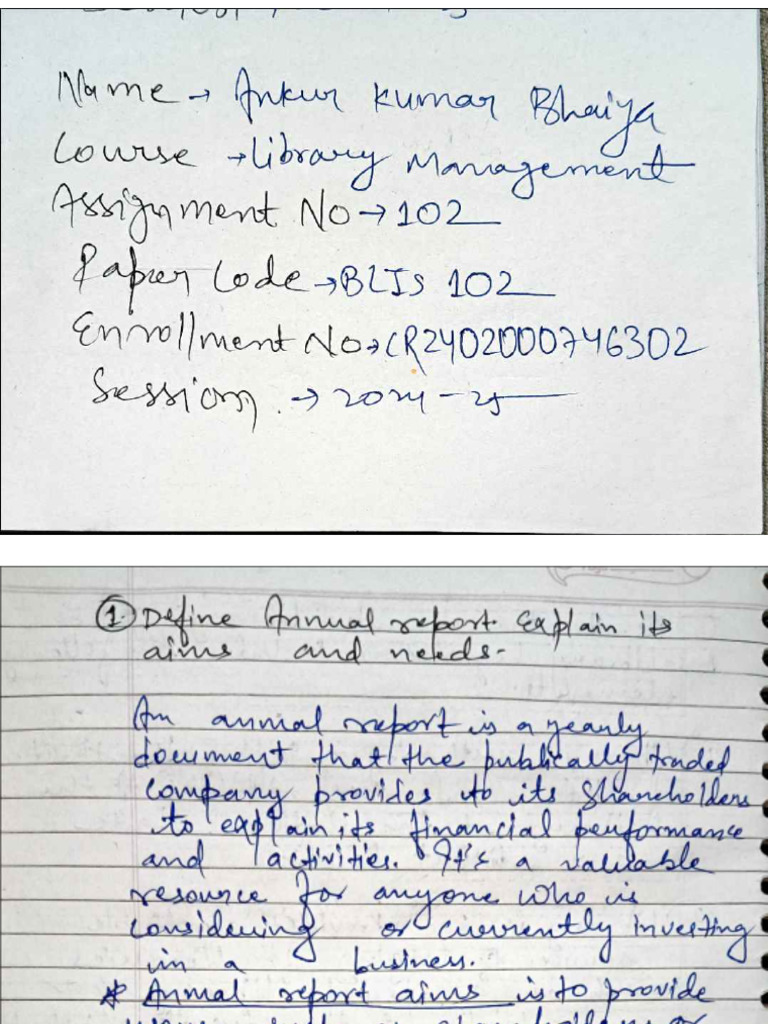 Name → Ankur Kumar Bhaiya
Course → Library Management
Assignment No → 102
Paper Code → BLIS 102
Enrollment No → CR2402000746302
Session → 2024-25
① Define Annual report. Explain its
aims and needs-
An annual report is a yearly
document that the publically traded
company provides to its shareholders
to explain its financial performance
and activities. It's a valuable
resource for anyone who is
considering or currently investing
in a business.
* Annual report aims is to provide